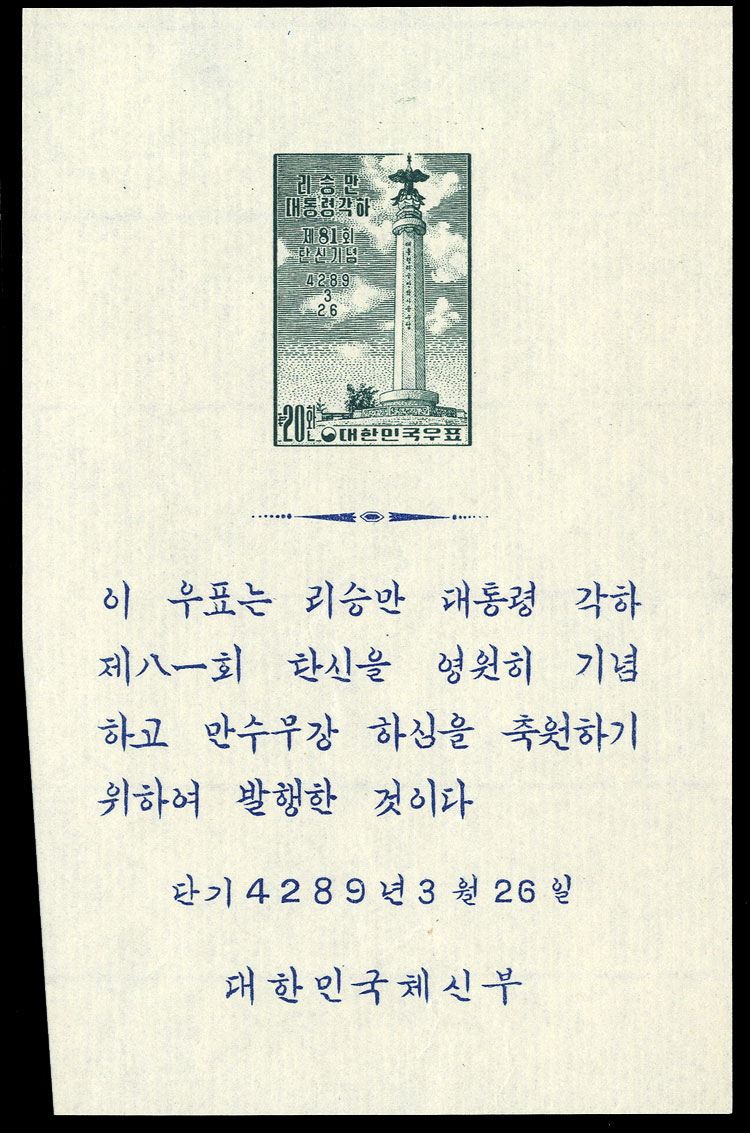 리승만
대통령각하
제81회
탄신기념
4289
3
26
20환
대한민국우표
이 우표는 리승만 대통령 각하
제八一회 탄신을 영원히 기념
하고 만수무강 하심을 축원하기
위하여 발행한 것이다
단기4289년3월26일
대한민국체신부